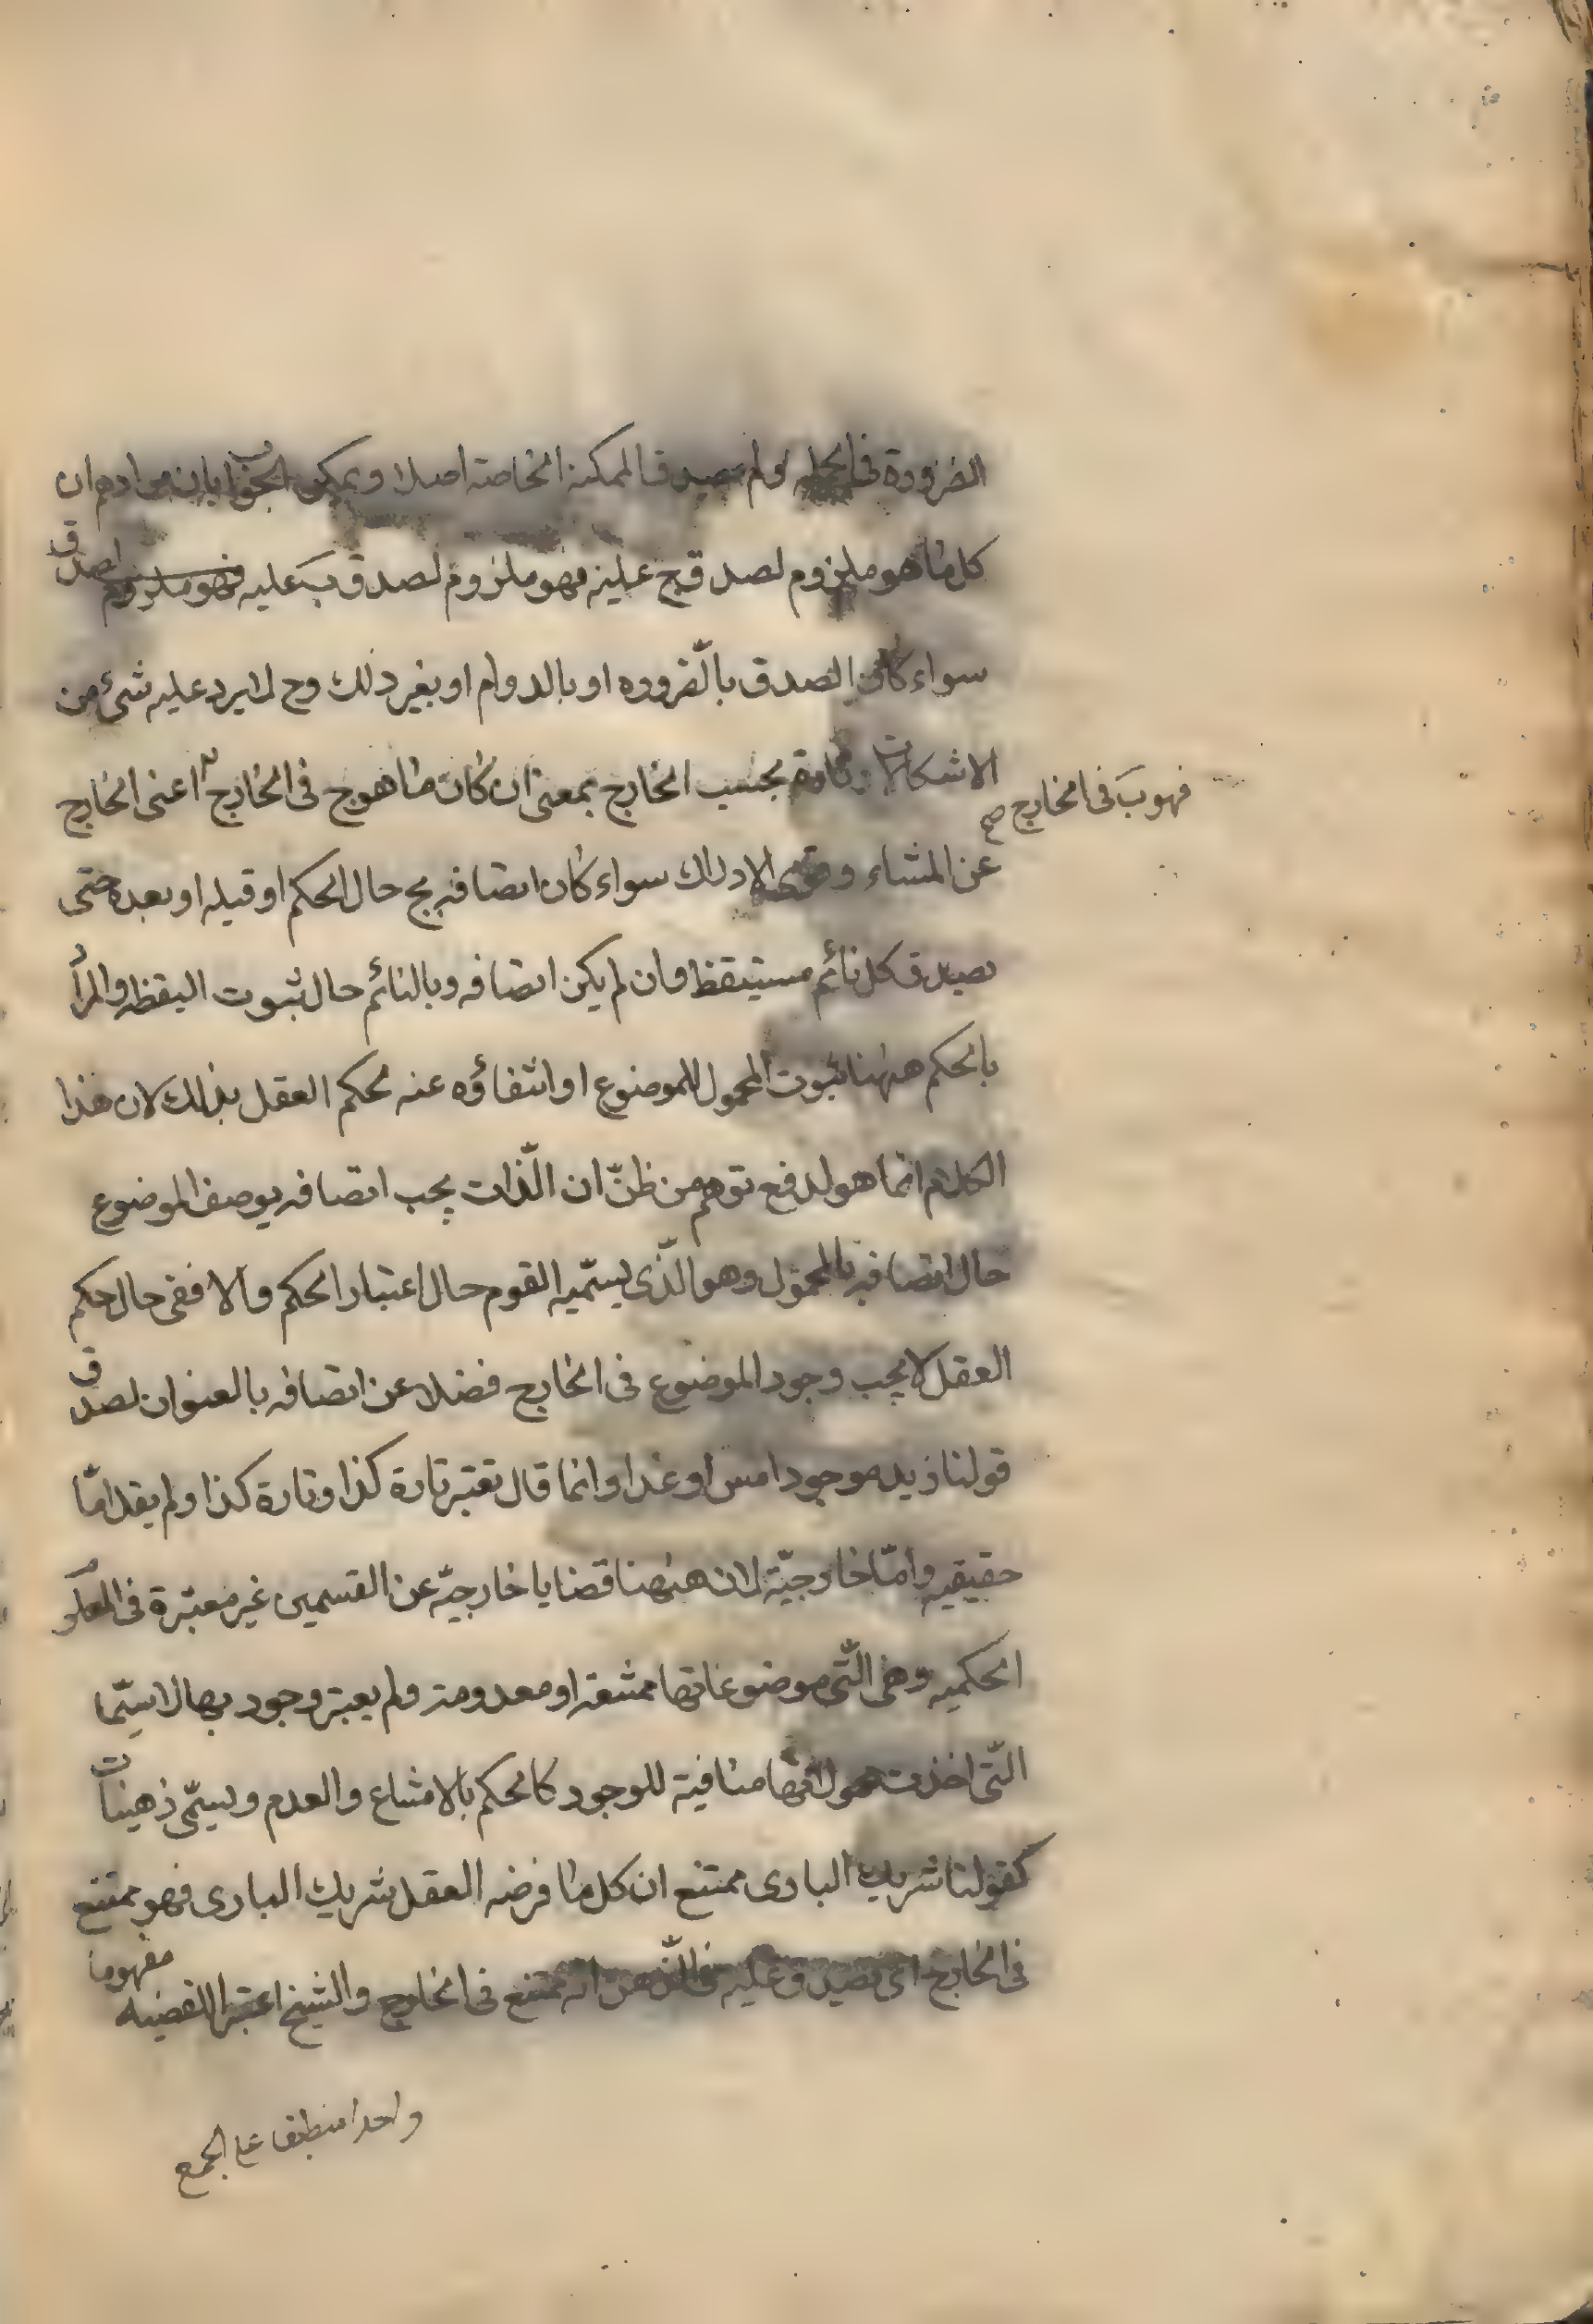 الضرورة فى الجملة ولم يصدق الممكنة الخاصة اصلا ويمكن الجواب بان مرادهم ان
كل ما هو ملزوم لصدق ج عليه فهو ملزوم لصدق ب عليه فهو ملزوم لصدق
سواء كان الصدق بالضروره او بالدوام او بغير ذلك وح لا يرد عليه شئ من
الاشكالات وتارة بحسب الخارج بمعنى ان كان ما هو ج فى الخارج اعنى الخارج
فهو ب فى الخارج صح
عن المشاء وقوى الادراك سواء كان اتصافه بج حال الحكم او قبله او بعده حتى
يصدق كل نائم مستيقظ وان لم يكن اتصافه وبالنائم حال ثبوت اليقظه والمراد
بالحكم ههنا ثبوت المحمول للموضوع او انتفاؤه عنه لحكم العقل بذلك لان هذا
الكلام انما هو لدفع توهم من ظنّ ان الّذات يجب اتصافه بوصف الموضوع
حال اتصافه بالمحمول وهو الّذى يسمّيه القوم حال اعتبار الحكم والا ففى حال حكم
العقل لا يجب وجود الموضوع فى الخارج فضلا عن اتصافه بالعنوان لصدق
قولنا زيد موجود امس او غدا وانما قال تعتبر تارة كذا وتارة كذا ولم يقل امّا
حقيقيه وامّا خارجيّة لان ههنا قضايا خارجيّه عن القسمين غير معتبرة فى العلوم
الحكميه وهى الّتى موضوعاتها ممتنعة او معدومة ولم يعتبر وجود بها لا سيّما
الّتى اخذت محمولاتها منافية للوجود كالحكم بالامتناع والعدم ويسمّى ذهنيات
كقولنا شريك البارى ممتنع ان كل ما فرضه العقل شريك البارى فهو ممتنع
فى الخارج اى يصدق عليه فى الّذهن انّه ممتنع فى الخارج والشيخ اعتبر للقضيه مفهوما
واحدا منطبقا على الجمع